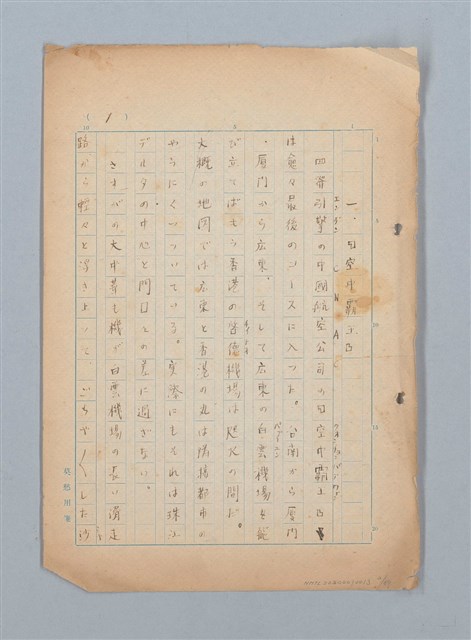 (1)
一、「空中霸王号
四基引擎の中國航空公司の「空中霸王号」
エンヂン
CNAC
は愈々最後のコースに入つた。台南から厦門
、厦門から広東、そして広東の白雲機場を超
び立てばもう香港の啓徳機場は咫尺の間だ。
大概の地図では広東と香港の丸は隣接都市の
やうにくつついている。実際にもそれは珠江
デルタの中心と門口との差に過ぎない。
さすがの大中華も機が白雲機場の長い滑走
路から軽々と浮き上つて、ごちや〱した沙